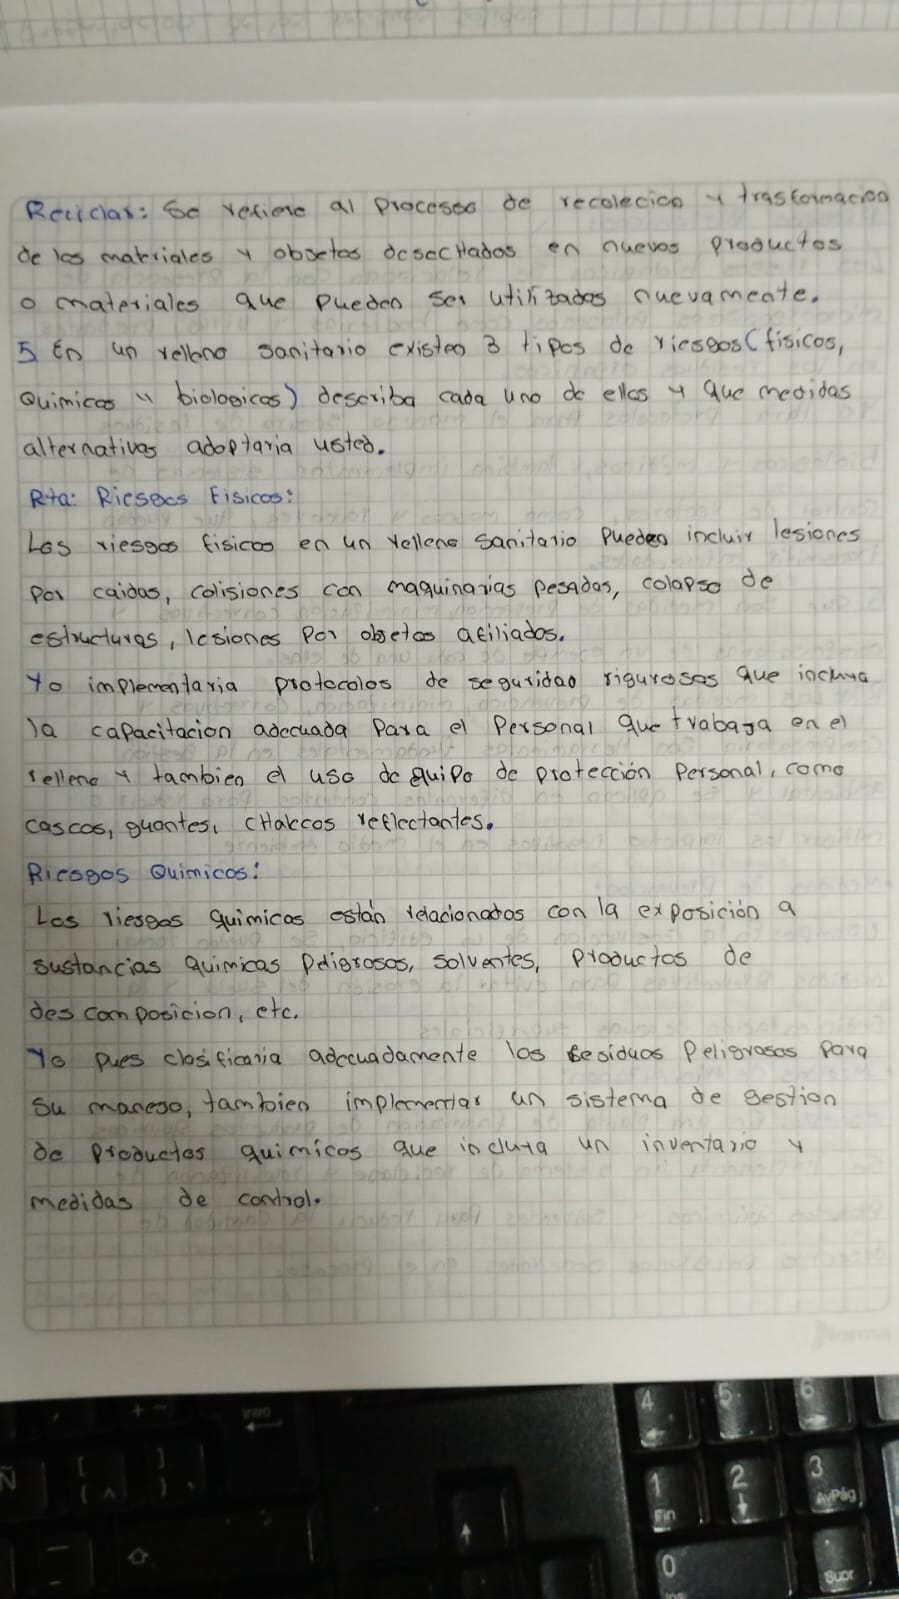 Reciclar: Se refiere al procesoo de recolecion y trasformacion
de los matriales y objetos desecHados en nuevos productos
o materiales que pueden ser utilizados nuevamente.
5 En un relleno sanitario existen 3 tipos de riesgos (fisicos,
Quimicos y biologicos) describa cada uno de ellos y que medidas
alternativas adoptaria usted.
Rta: Riesgos Fisicos:
Los riesgos fisicos en un relleno sanitario pueden incluir lesiones
por caidas, colisiones con maquinarias pesadas, colapso de
estructuras, lesiones por objetos afiliados.
Yo implementaria protocolos de seguridad rigurosos que incluya
la capacitacion adecuada para el personal que trabaja en el
relleno y tambien el uso de quipo de protección personal, como
cascos, guantes, cHalecos reflectantes.
Riesgos Quimicos:
Los riesgos quimicos están relacionados con la exposición a
sustancias quimicas peligrosos, solventes, productos de
descomposicion, etc.
Yo pues clasificaria adecuadamente los residuos peligrosos para
su manejo, tambien implementar un sistema de gestion
de productos quimicos que incluya un inventario y
medidas de control.
Norma
Intro
Ñ
4
5
6
1
Fin
2
3
AvPág
0
Ins
Supr